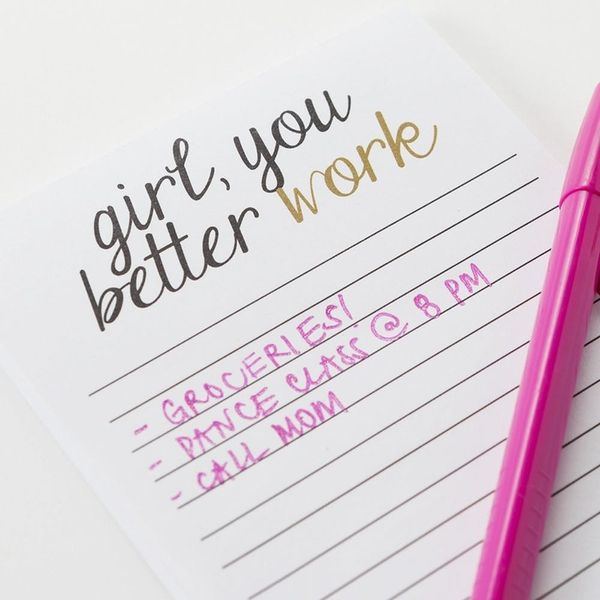 girl, you
better work
- GROCERIES!
- DANCE CLASS @ 8 PM
- CALL MOM